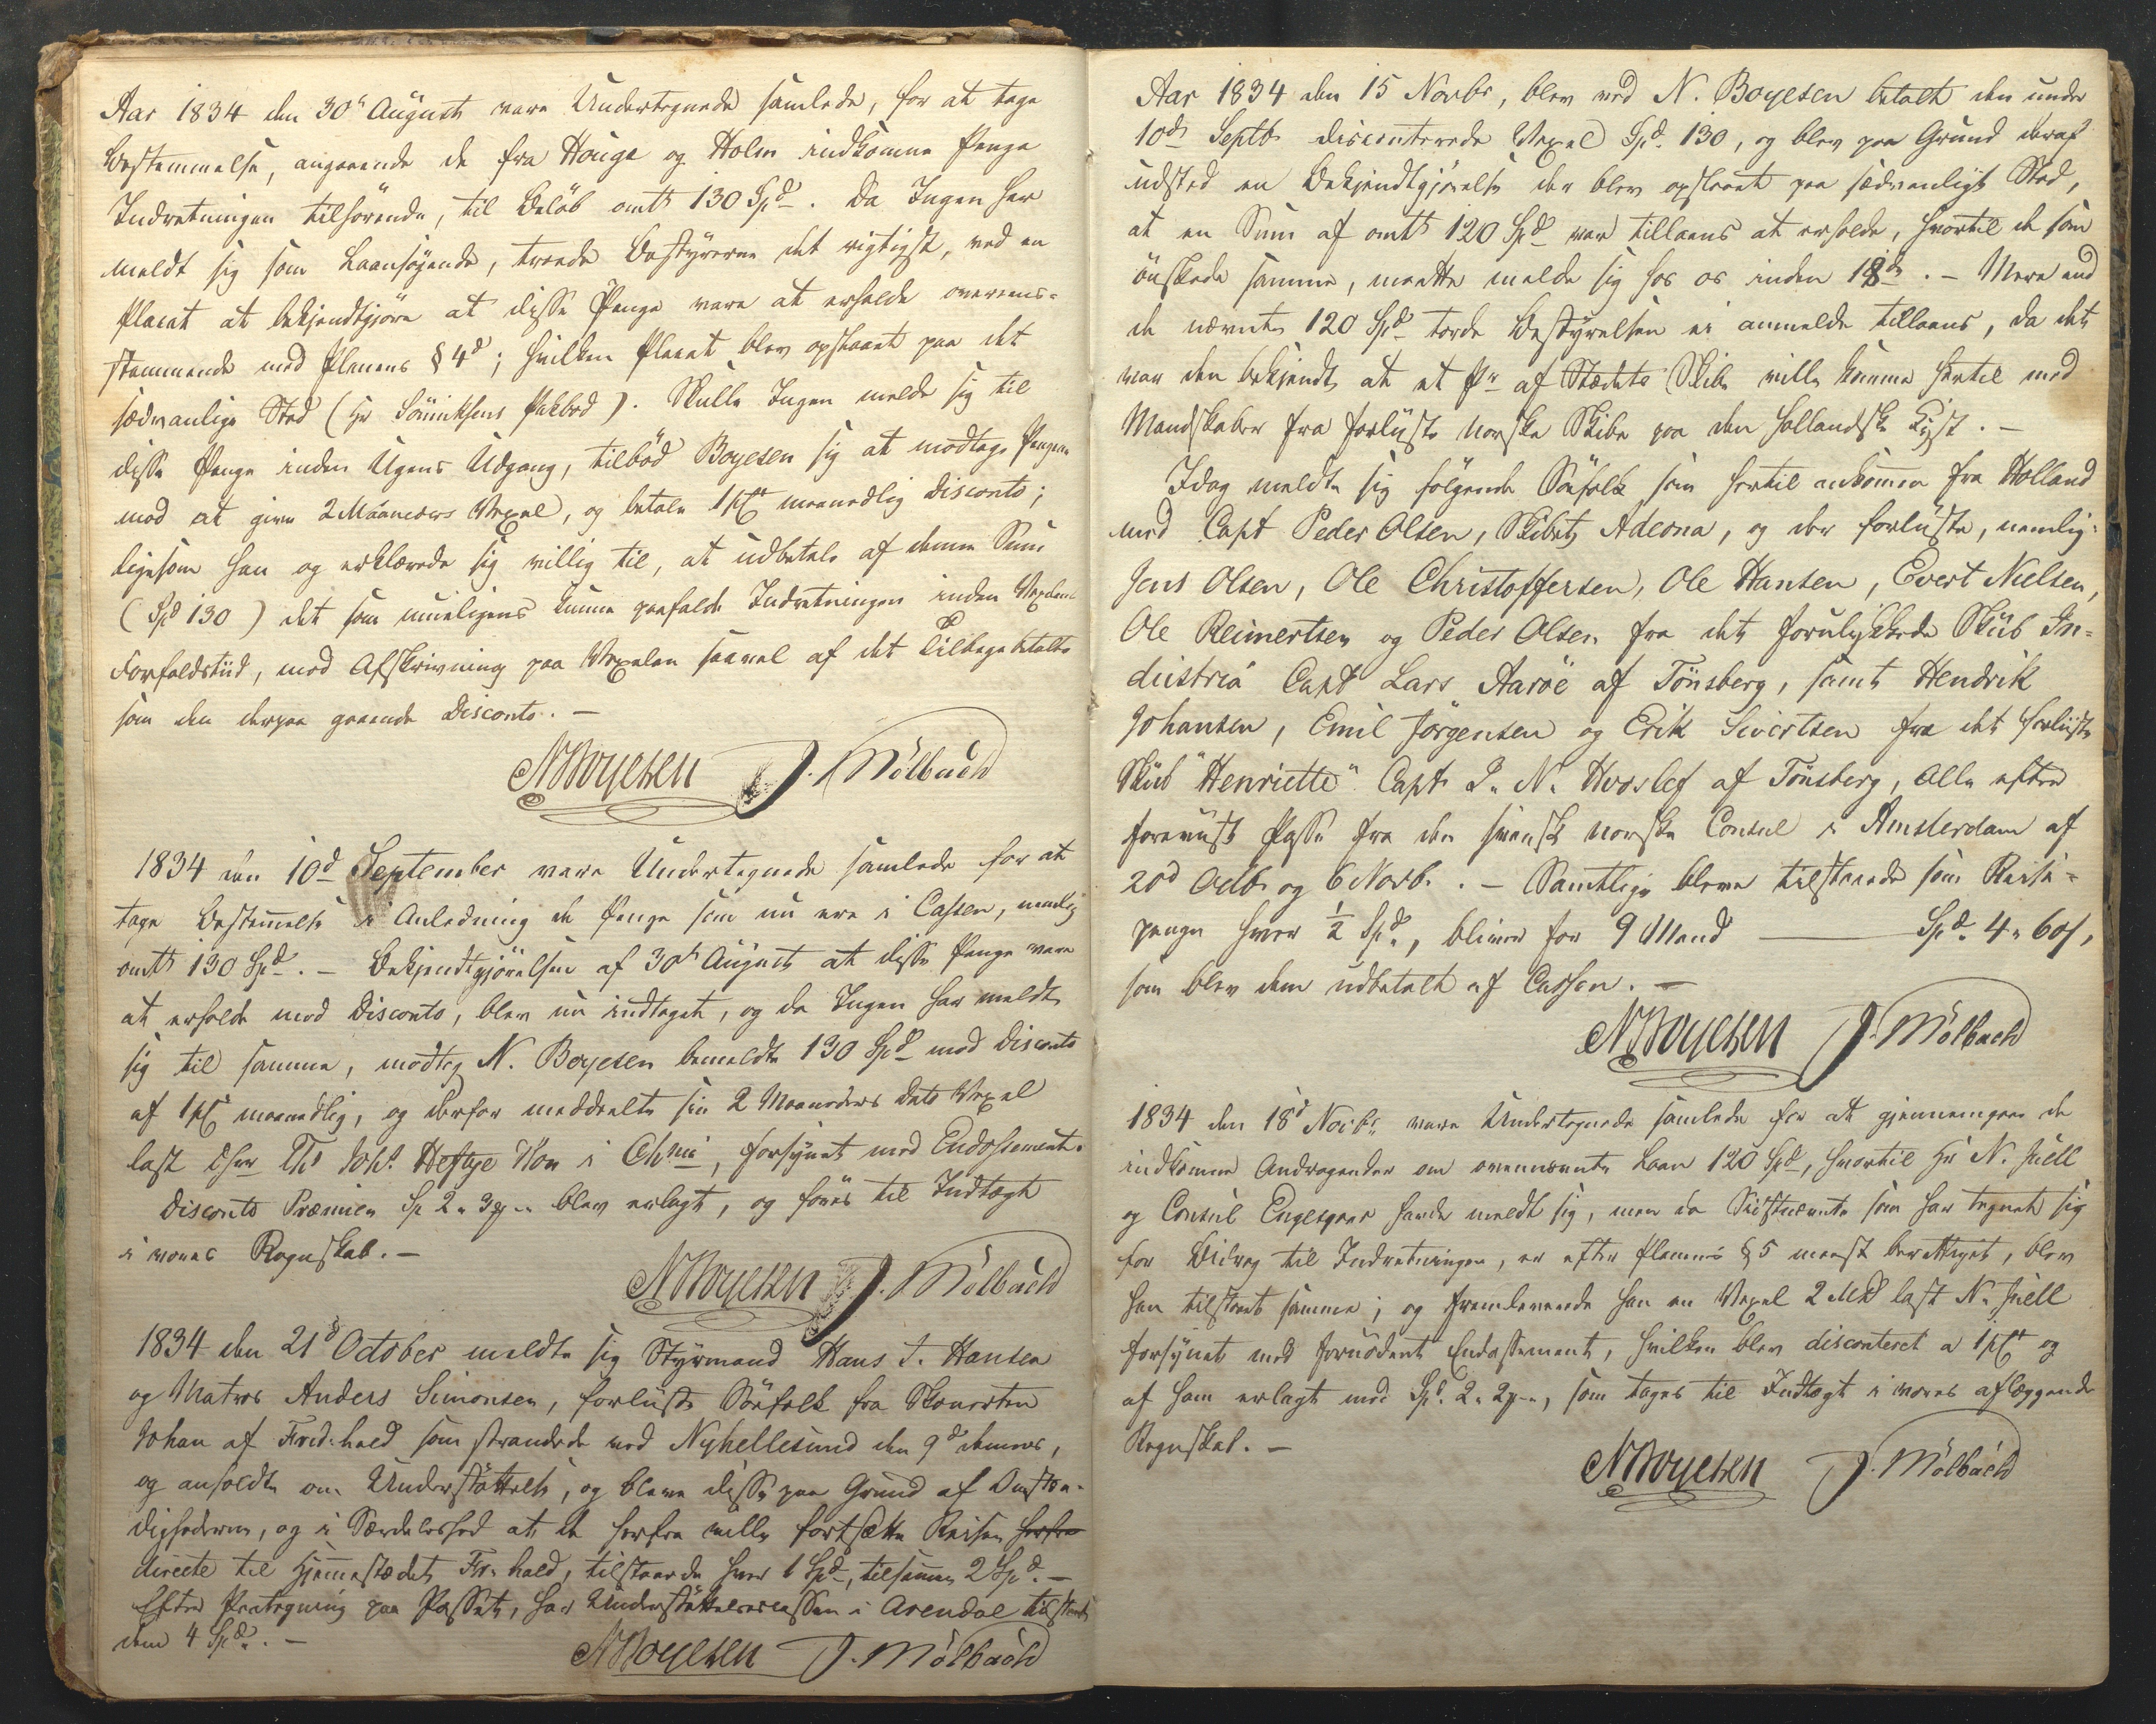 Aar 1834 den 30te August vare Undertegnede samlede, for at tage
Bestemmelse, angaaende de fra Houge og Holm indkomne Penge
Indretningen tilhørende, til Beløb omtt 130 Spd. Da Ingen har
meldt sig som Laansøgende, troede Bestyrerne det rigtigst, ved en
Placat at bekjendtgjøre at disse Penge vare at erholde overens-
stemmende med Planens § 4d; hvilken Placat blev opslaaet paa det
sædvanlige Sted (Hr Sönniksens Pakbod). Skulle Ingen melde sig til
disse Penge inden Ugens Udgang, tilbød Boyesen sig at modtage Pengene
mod at give 2 Maaneders Vexel, og betale 1 pCt maanedlig Disconto;
ligesom han og erklærede sig villig til, at udbetale af denne Sum
(Spd 130) det som mueligens kunne paafalde Indretningen inden Vexelens
Forfaldstiid, mod Afskrivning paa Vexelen saavel af det Tilbagebetalte
som den derpaa gaaende Disconto. –
NBoyesen J. Mölbach
1834 den 10d September vare Undertegnede samlede for at
tage Bestemmelse i Anledning de Penge som nu ere i Cassen, nemlig
omtt 130 Spd. – Bekjendtgjörelsen af 30te August at disse Penge vare
at erholde mod Disconto, blev nu indtaget, og da Ingen har meldt
sig til samme, modtog N. Boyesen bemeldte 130 Spd mod Disconto
af 1 pCt maanedlig, og derfor meddeelte sin 2 Maaneders dato Vexel
last Ths Johs Heftye i Chnia, forsynet med Endossement.
Disconto Præmien Sp 2 „ 3 „ blev erlagt, og föres til Indtægt
i vores Regnskab. –
NBoyesen J. Mölbach
1834 den 21d October meldte sig Styrmand Hans J. Hansen
og Matros Anders Simonsen, forliiste Söefolk fra Skonerten
Johan af Fred.hald som strandede ved Nyhellesund den 9d dennes,
og anholdte om Understøttelse, og bleve disse paa Grund af Omstæn-
dighederne, og i Særdeleshed at de herfra ville fortsætte Reisen herfra
directe til Hjemmestædet Fr.hald, tilstaaede hver 1 Spd, tilsammen 2 Spd. –
Efter Paategning paa Passet, har Understøttelsescassen i Arendal tilstaaet
dem 4 Spd. –
NBoyesen J. Mölbach
Aar 1834 den 15 Novbr, blev ved N. Boyesen betalt den under
10de Septb disconterede Vexel Spd. 130, og blev paa Grund deraf
udsted en Bekjendtgjörelse der blev opslaaet paa sædvanligt Sted,
at en Sum af omtt 120 Spd var tillaans at erholde, hvortil de som
önskede samme, maatte melde sig hos os inden 18de. – Mere end
de nævnte 120 Spd torde Bestyrelsen ei anmelde tillaans, da det
var den bekjendt, at et Pr af Stædets Skibe ville komme hertil med
Mandskaber fra forliiste norske Skibe paa den hollandske Kyst. –
Idag meldte sig følgende Söefolk som hertil ankommen fra Holland
med Capt Peder Olsen, Skibet Adeona, og der forliiste, nemlig:
Jens Olsen, Ole Christoffersen, Ole Hansen, Evert Nielsen,
Ole Reimertsen og Peder Olsen fra det forulykkede Skiib In-
dustria Capt Lars Aarøe af Tönsberg, samt Hendrik
Johansen, Emil Jörgensen og Erik Sivertsen fra det forliiste
Skiib "Henriette" Capt J. N. Hvoslef af Tönsberg, Alle efter
foreviist Passe fra den svensk norske Consul i Amsterdam af
20d Octb og 6 Novb. – Samtlige bleve tilstaaede som Reise-
penge hver ½ Spd, bliver for 9 Mand — Spd. 4 „ 60 s,
som blev dem udbetalt af Cassen. –
NBoyesen J. Mölbach
1834 den 18d Novbr vare Undertegnede samlede for at gjennemgaae de
indkomne Andragender om ovennævnte Laan 120 Spd, hvortil Hr N. Juell
og Consul Engesgaar havde meldt sig, men da Sidstnævnte som har tegnet sig
for Bidrag til Indretningen, er efter Planens § 5 meest berettiget, blev
han tilstaaet samme; og fremleverede han en Vexel 2 Mdr last N. Juell
forsynet med fornödent Endossement, hvilken blev disconteret a 1 pCt og
af ham erlagt med Spd. 2 „ 2 „, som tages til Indtægt i vores aflæggende
Regnskab. –
NBoyesen J. Mölbach